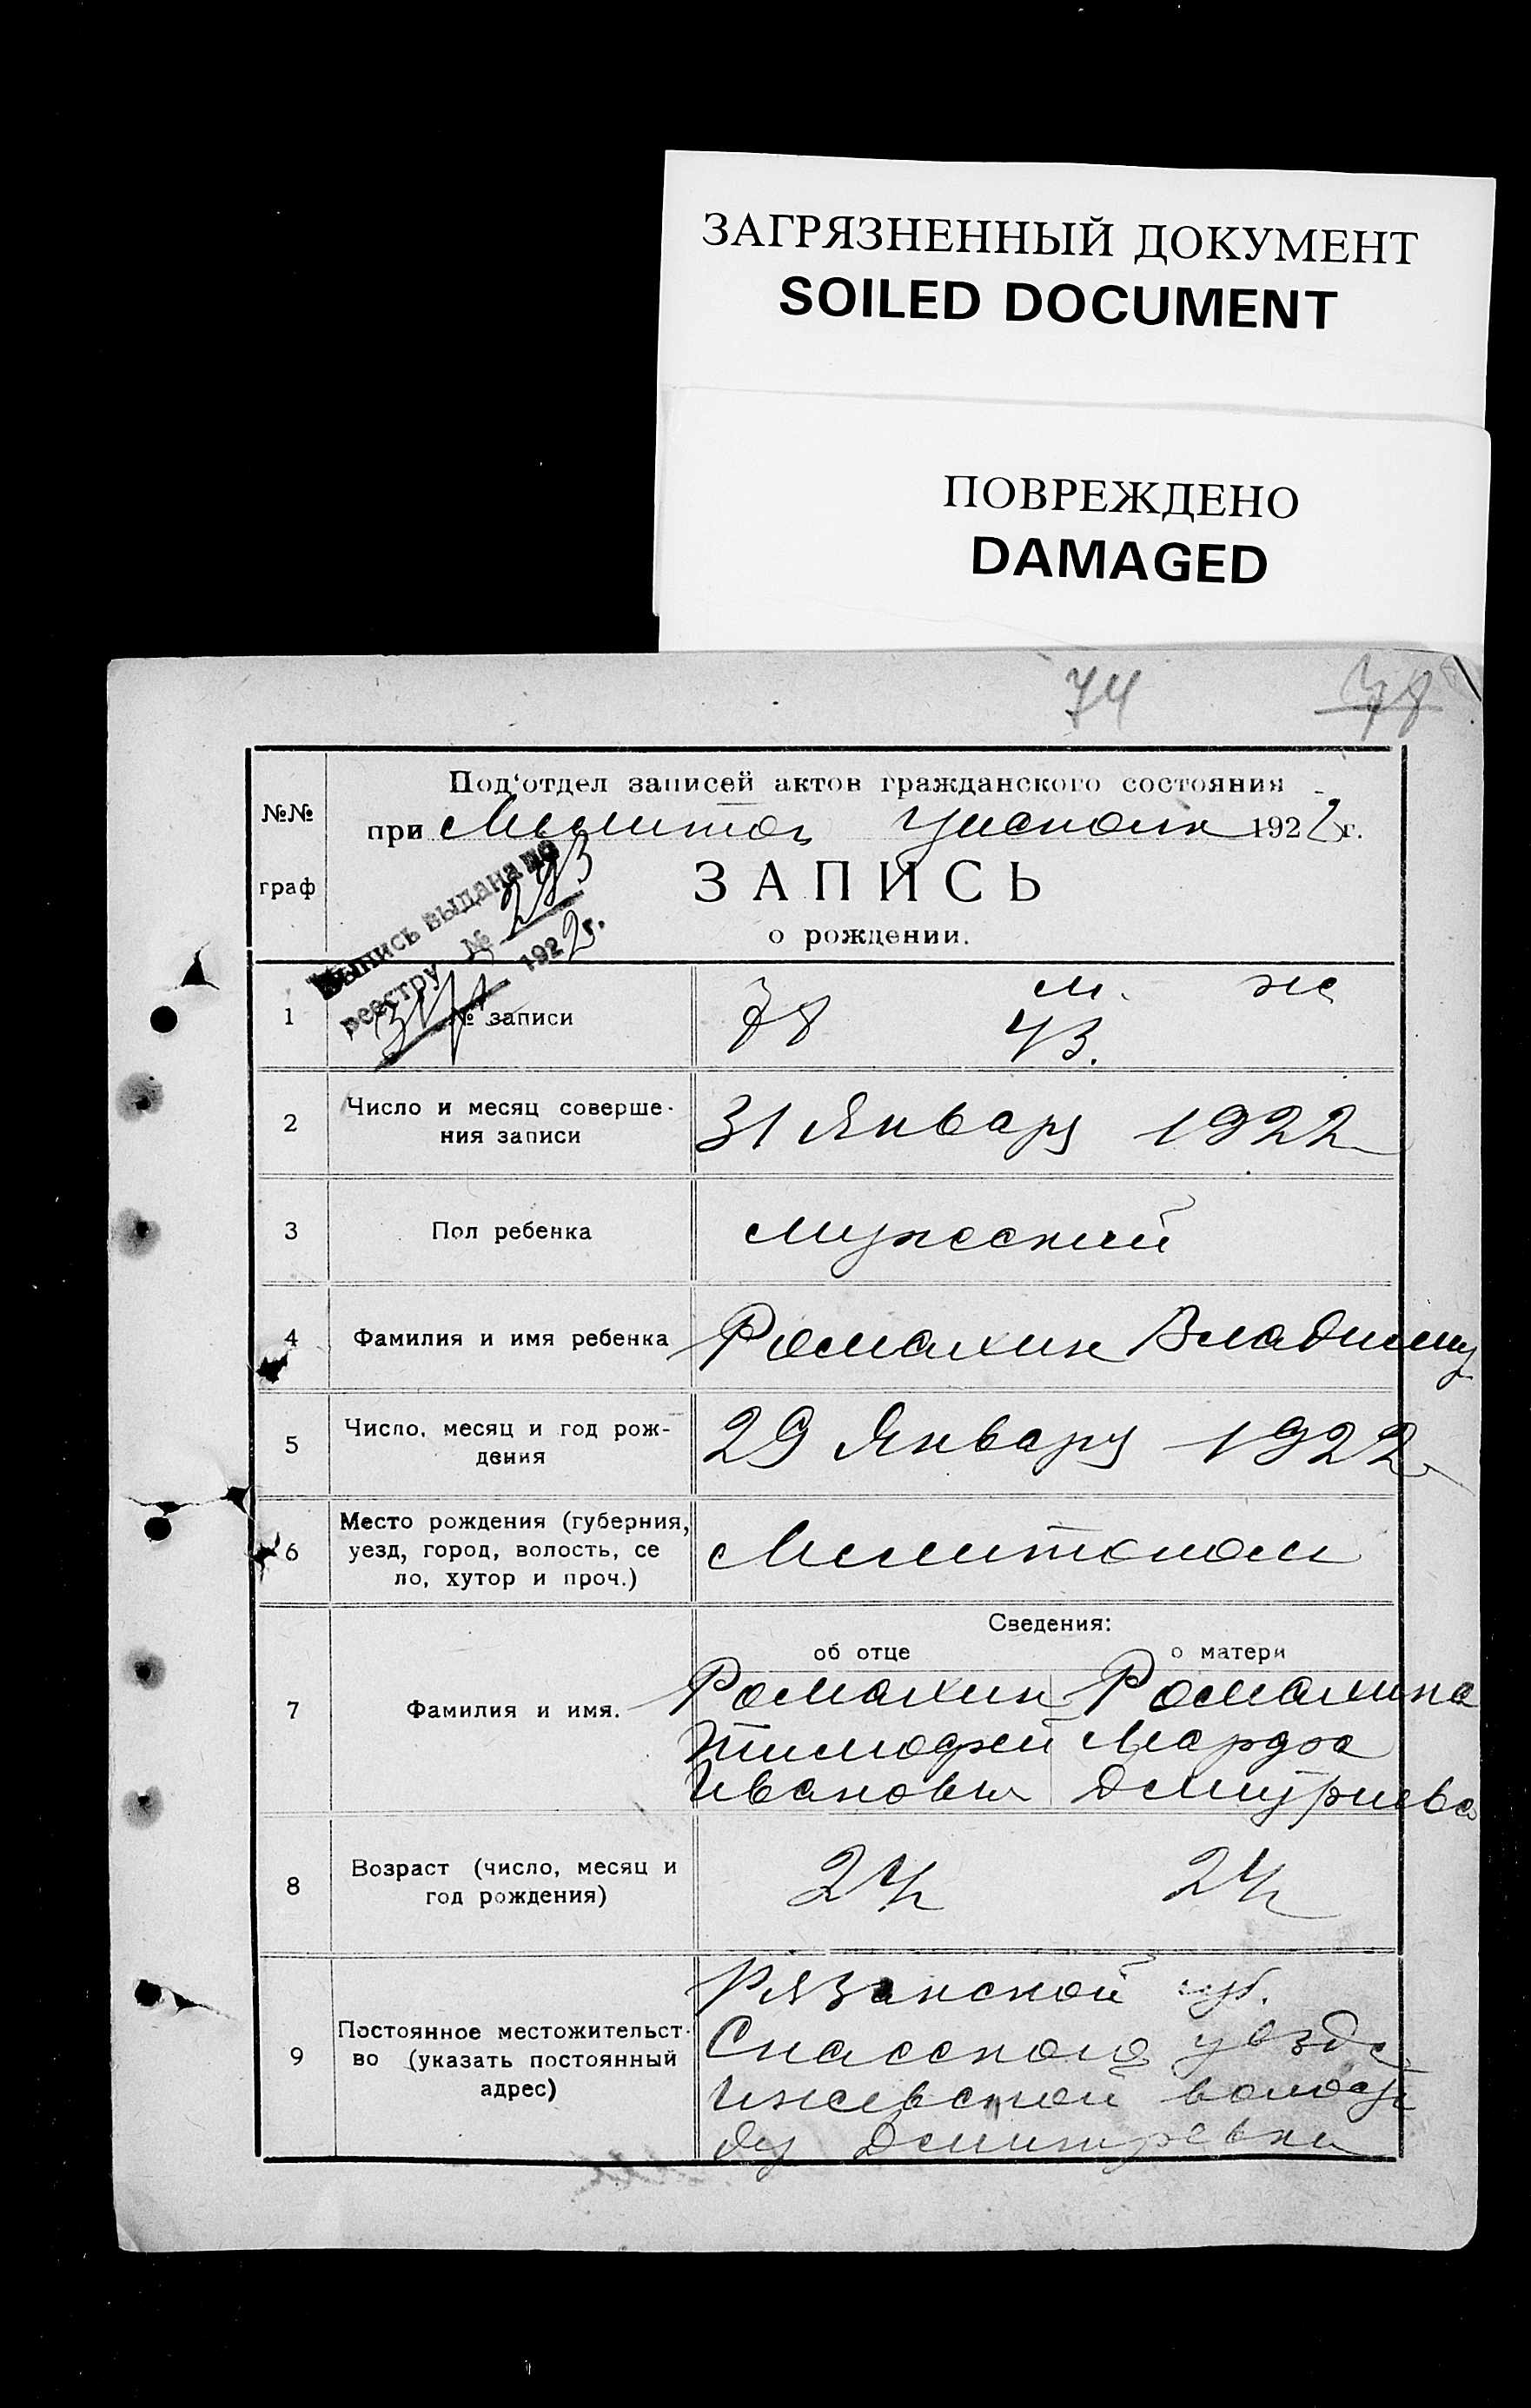 ЗАГРЯЗНЕННЫЙ ДОКУМЕНТ
SOILED DOCUMENT
ПОВРЕЖДЕНО
DAMAGED
74 78
№№ граф
Под'отдел записей актов гражданского состояния
при Мелитоп Уисполк 1922 г.
ЗАПИСЬ
о рождении.
Выпись выдана по
реестру № 293
31/I 1922 г.
1 № записи 78 м. ж
43.
2 Число и месяц соверше-
ния записи 31 Январу 1922
3 Пол ребенка мужеский
4 Фамилия и имя ребенка Ромахин Владимир
5 Число, месяц и год рож-
дения 29 Январу 1922
6 Место рождения (губерния,
уезд, город, волость, се
ло, хутор и проч.) Мелитополь
Сведения:
об отце о матери
7 Фамилия и имя. Ромахин Ромахина
Тимофей Марфа
Иванович Дмитриева
8 Возраст (число, месяц и
год рождения) 24 24
9 Постоянное местожительст-
во (указать постоянный
адрес) Рязанской губ.
Спасского уезда
Ижевской волости
Дмитревки